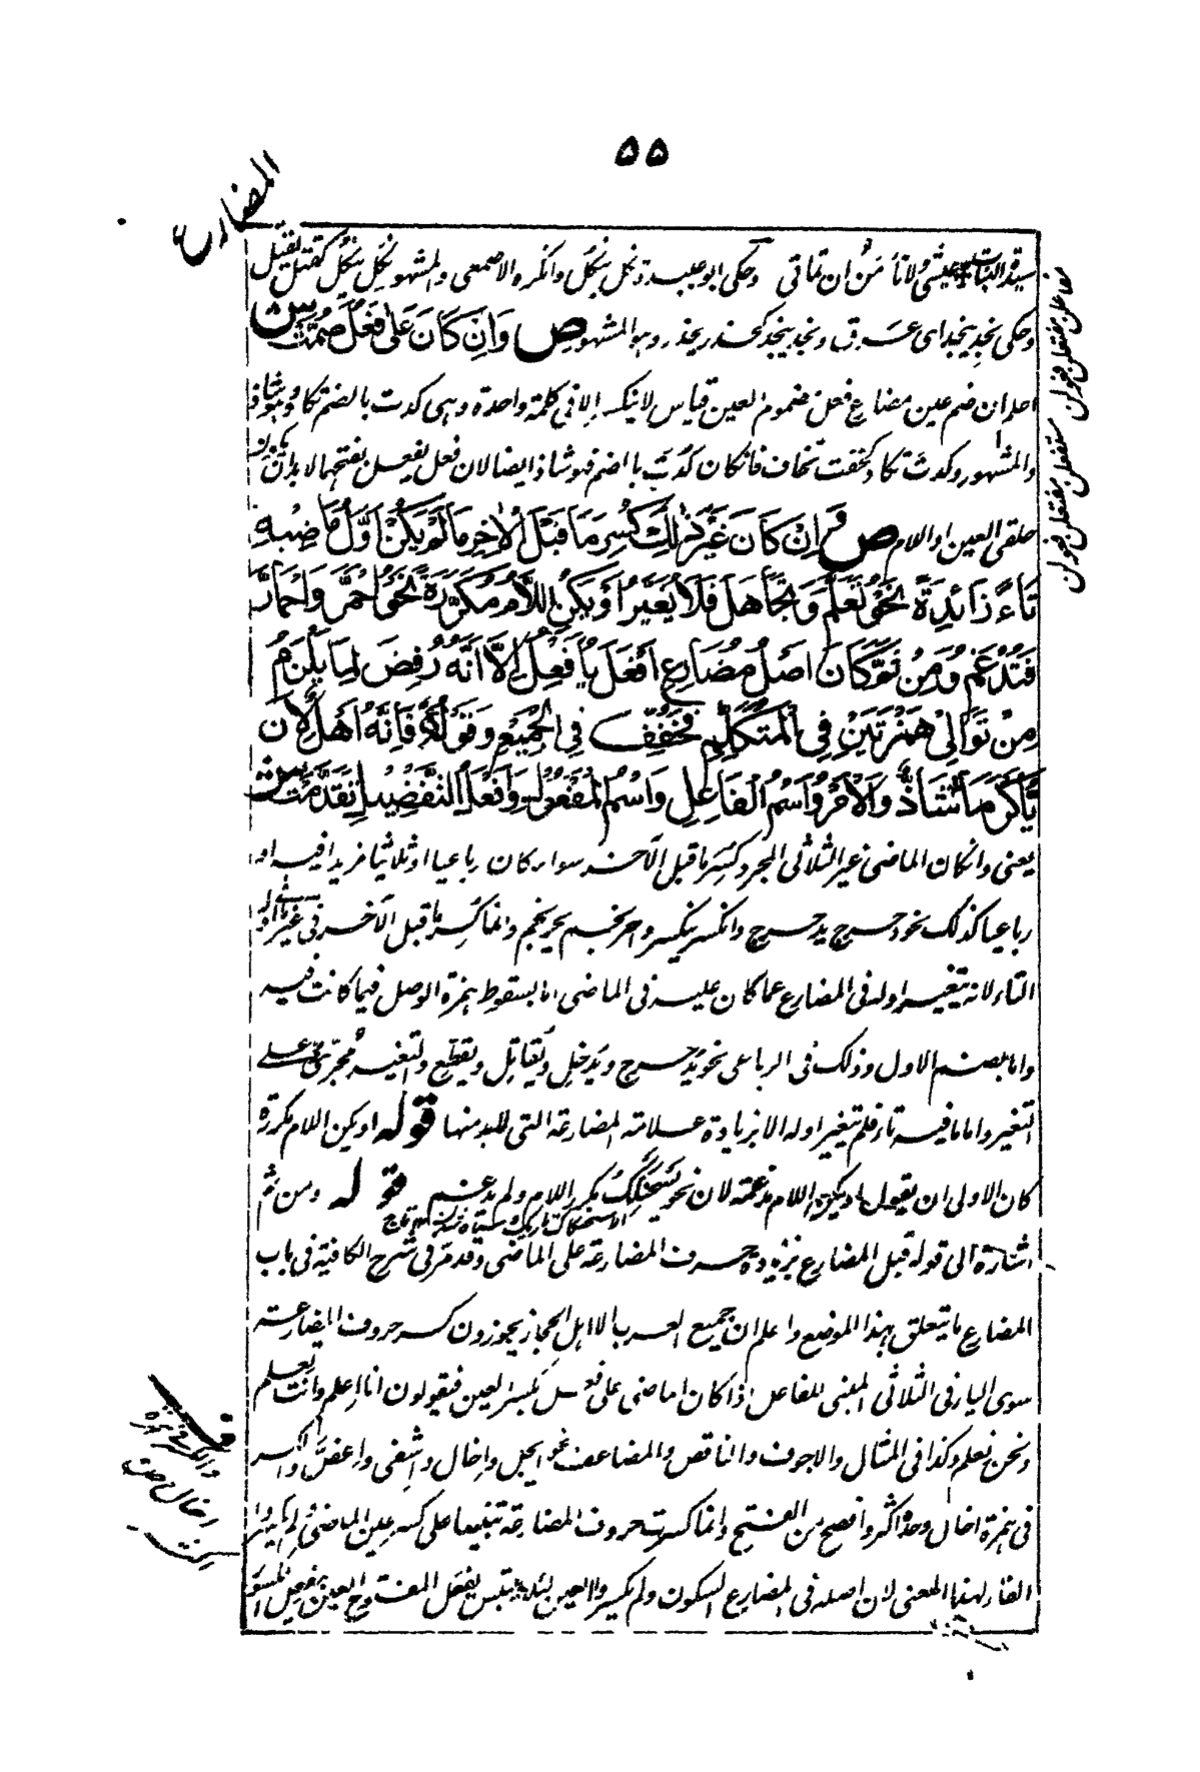 ۵۵
المضارع
سيدة البنات عيشي ولا نأمن ان تماتي وحكى ابو عبيدة نكل ينكل وانكره الاصمعي والمشهور نكل ينكل كقتل يقتل
وحكى نجد ينجد اى عرق ونجد ينجد كحذر يحذر وهو المشهور ص وَاِنْ كَانَ عَلٰى فَعُلَ ضُمَّتْ ش
اعلم ان ضم عين مضارع فعل مضموم العين قياس لا ينكسر الا في كلمة واحدة وهى كدت بالضم تكاد وهو شاذ
والمشهور كدت تكاد كخفت تخاف فان كان كدت بالضم فهو شاذ ايضا لان فعل يفعل بفتحهما لا بد ان يكون
حلقى العين او اللام ص وَاِنْ كَانَ غَيْرَ ذٰلِكَ كُسِرَ مَا قَبْلَ الْاٰخِرِ مَا لَمْ يَكُنْ اَوَّلُ مَاضِيْهِ
تَاءً زَائِدَةً نَحْوُ تَعَلَّمَ وَتَجَاهَلَ فَلَا يُغَيَّرُ اَوْ يَكُنِ اللَّامُ مُكَرَّرَةً نَحْوُ احْمَرَّ وَاحْمَارَّ
فَتُدْغَمُ وَمِنْ ثَمَّ كَانَ اَصْلُ مُضَارِعِ اَفْعَلَ يُأَفْعِلُ اِلَّا اَنَّهُ رُفِضَ لِمَا يَلْزَمُ
مِنْ تَوَالِيْ هَمْزَتَيْنِ فِى الْمُتَكَلِّمِ فَخُفِّفَ فِى الْجَمِيْعِ وَقَوْلُهُ فَاِنَّهُ اَهْلٌ لِاَنْ
يُّأَكْرَمَا شَاذٌّ وَالْاَمْرُ وَاسْمُ الْفَاعِلِ وَاسْمُ الْمَفْعُوْلِ وَاَفْعَلُ التَّفْضِيْلِ تَقَدَّمَتْ ش
يعنى وان كان الماضى غير الثلاثى المجرد كسر ما قبل الآخر سواء كان رباعيا او ثلاثيا مزيدا فيه او
رباعيا كذلك نحو دحرج يدحرج وانكسر ينكسر واحرنجم يحرنجم وانما كسر ما قبل الآخر فى غير ما اوله
التاء لانه يتغير اوله فى المضارع عما كان عليه فى الماضى اما بسقوط همزة الوصل فيما كانت فيه
واما بضم الاول وذلك فى الرباعى نحو يدحرج ويدخل ويقاتل ويقطع والتغيير مجرئ على
التغيير واما ما فيه تاء فلم يتغير اوله الا بزيادة علامة المضارعة التى لا بد منها قوله او يكن اللام مكررة
كان الاولى ان يقول او يكن اللام مدغمة لان نحو يسحنكك مكرر اللام ولم يدغم قوله ومن ثم
اشارة الى قوله قبل المضارع بزيادة حرف المضارعة على الماضى وقد مر فى شرح الكافية فى باب
المضارع ما يتعلق بهذا الموضع واعلم ان جميع العرب الا اهل الحجاز يجوزون كسر حروف المضارعة
سوى الياء فى الثلاثى المبنى للفاعل اذا كان الماضى على فعل بكسر العين فيقولون انا اعلم وانت تعلم
ونحن نعلم وكذا فى المثال والاجوف والناقص والمضاعف نحو ايجل واخال واشقى واعض والكسر
فى همزة اخال وحده اكثر وافصح من الفتح وانما كسرت حروف المضارعة تنبيها على كسر عين الماضى ولم يكسروا
الفاء لهذا المعنى لان اصله فى المضارع السكون ولم يكسروا العين لئلا يلتبس يفعل المفتوح العين بيفعل المكسور